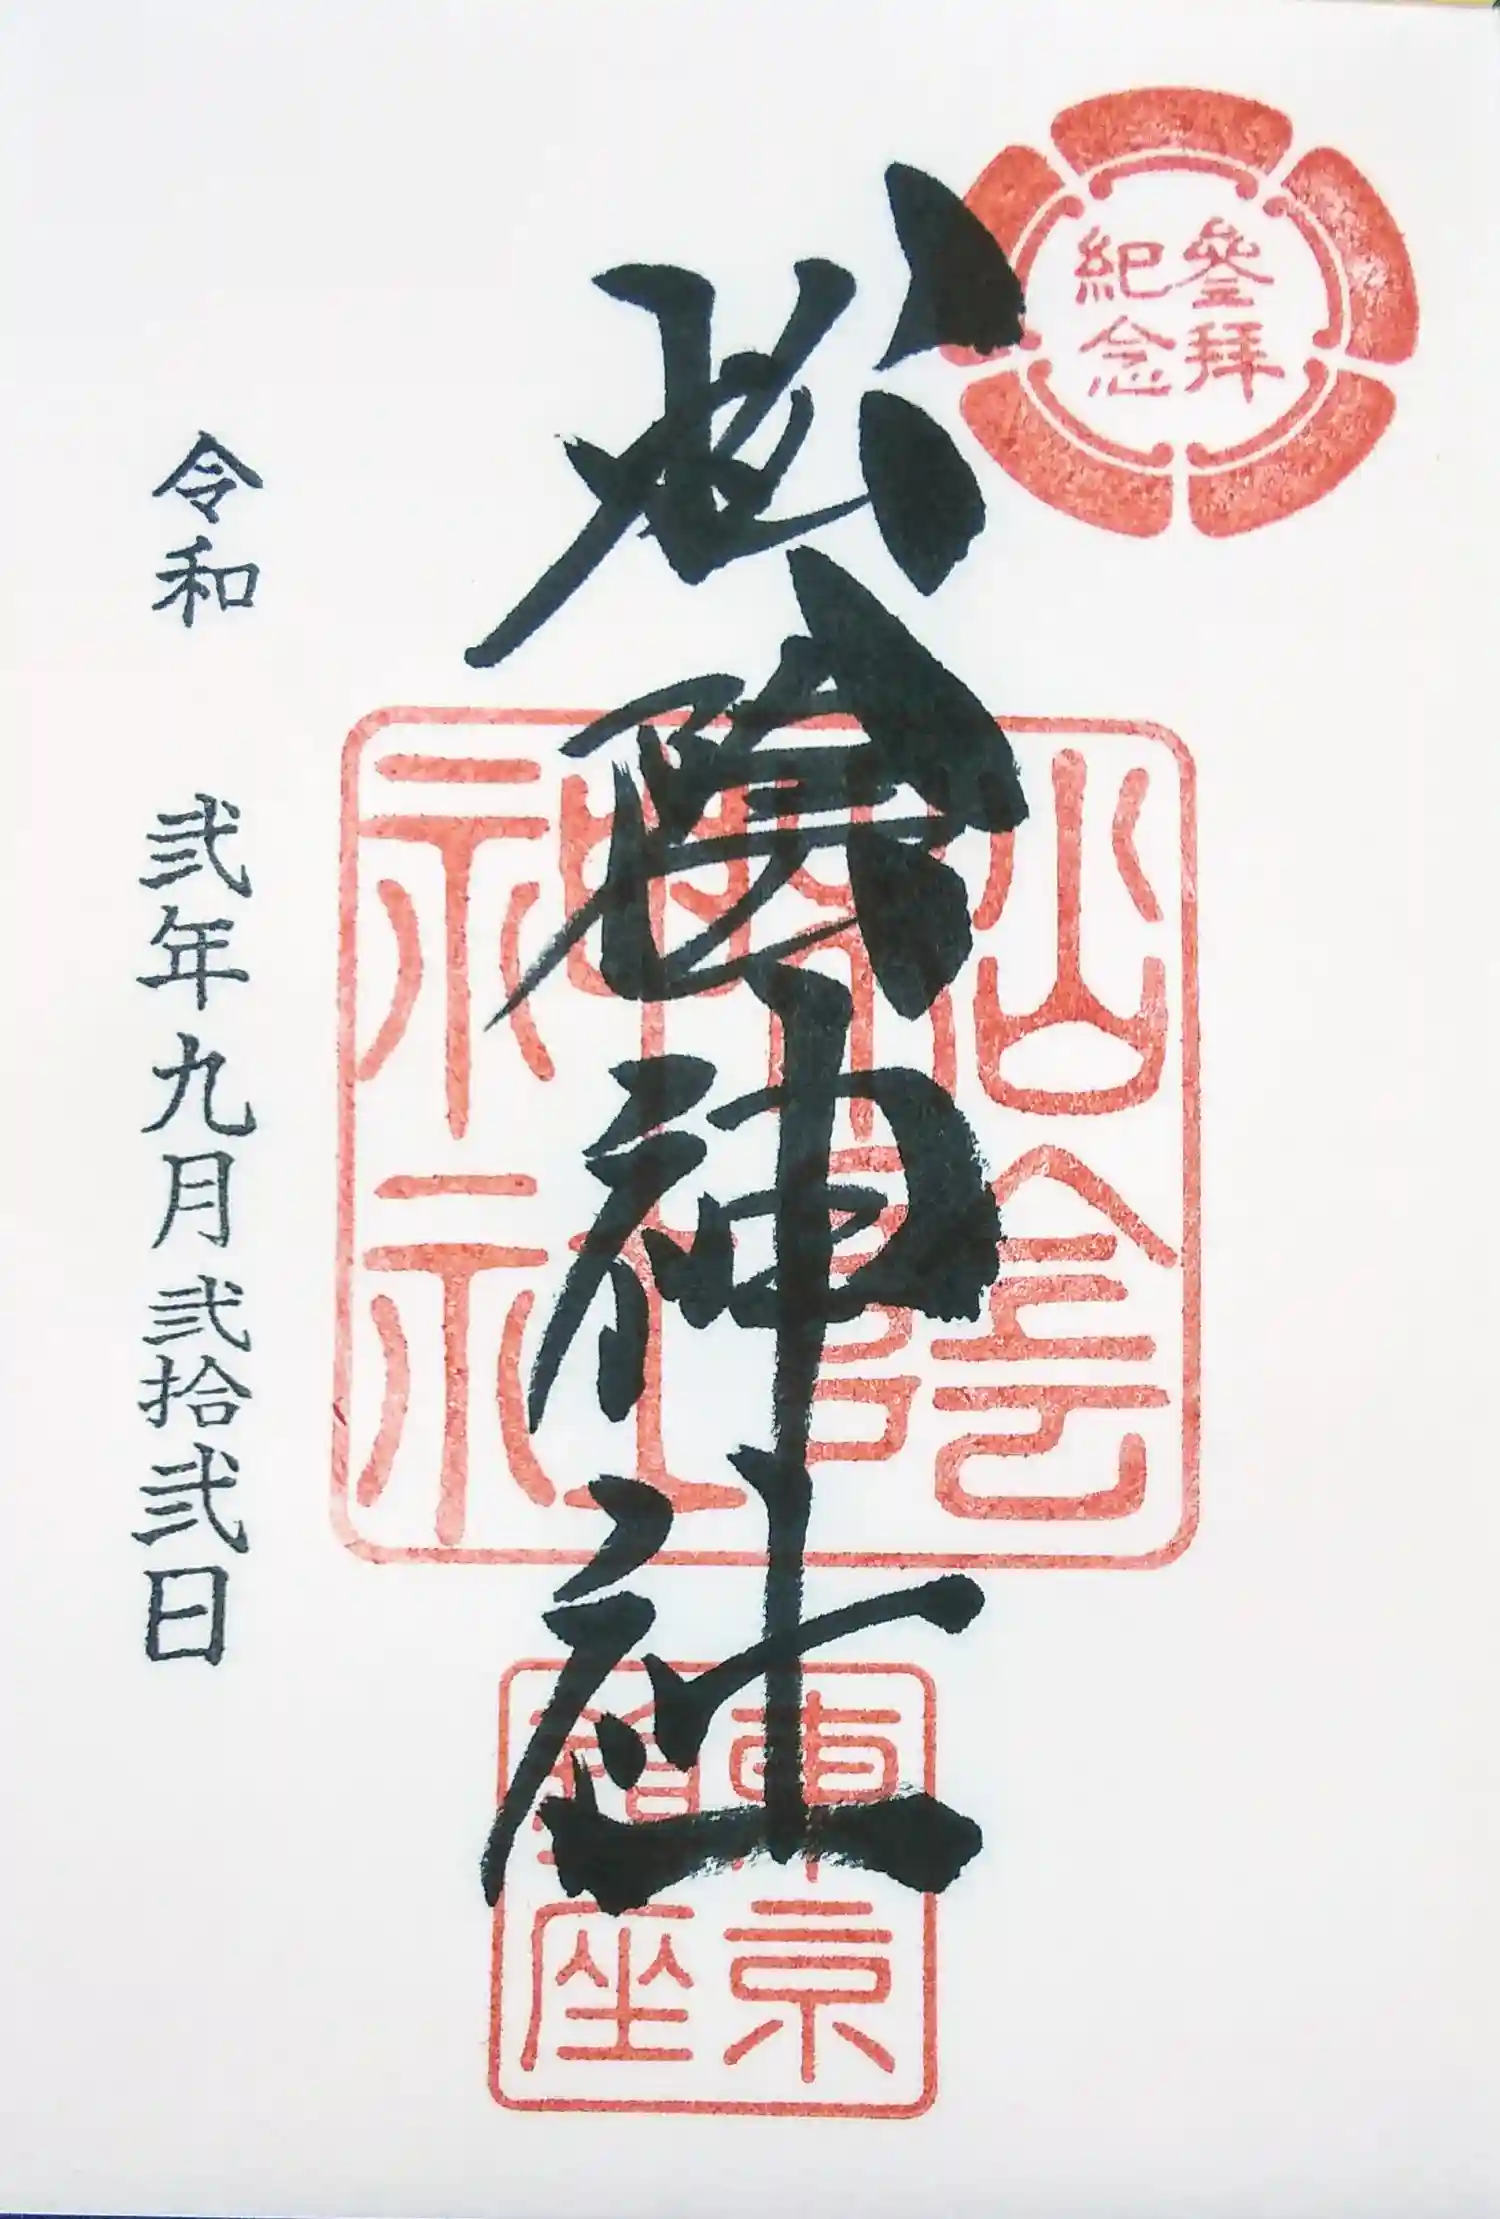 參拜
紀念
松陰神社
松陰
神社
東京
鎮座
令和 弐年九月弐拾弐日